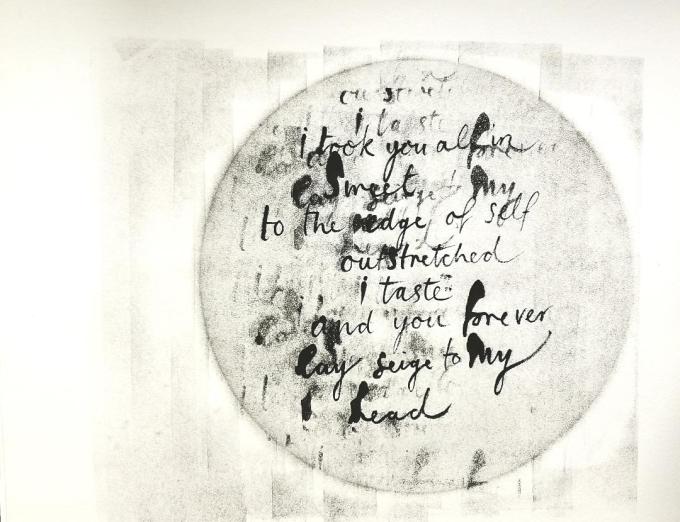 i took you all in
Sweet
to the edge of self
outstretched
i taste
and you forever
lay seige to my
head